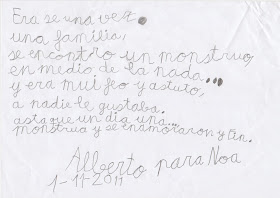 Era se una vez
una familia,
se encontro un monstruo
en medio de la nada...
y era mui feo y astuto,
a nadie le gustaba.
asta que un dia una...
monstrua y se enamoraron y fin.
Alberto para Noa
1-11-2011